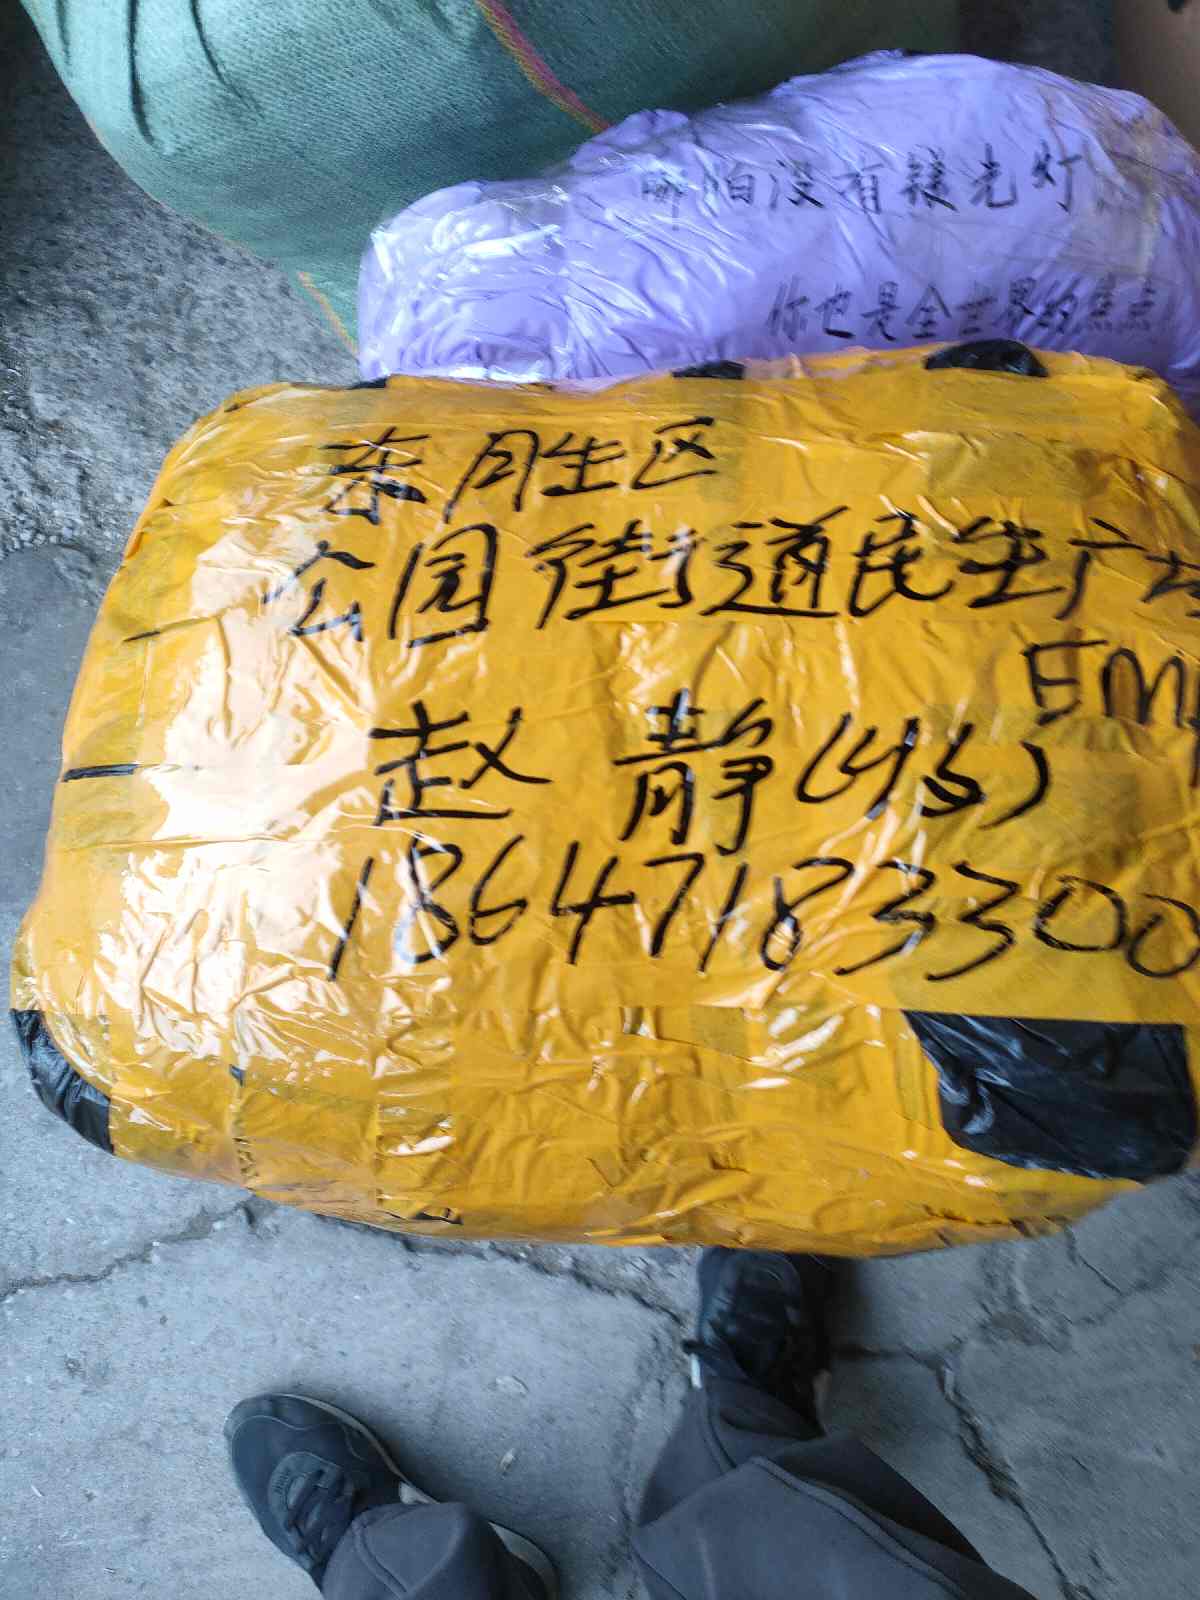 哪怕没有镁光灯
你也是全世界的焦点
东胜区
公园街道民生广场
EM
赵 静(收)
18647183300